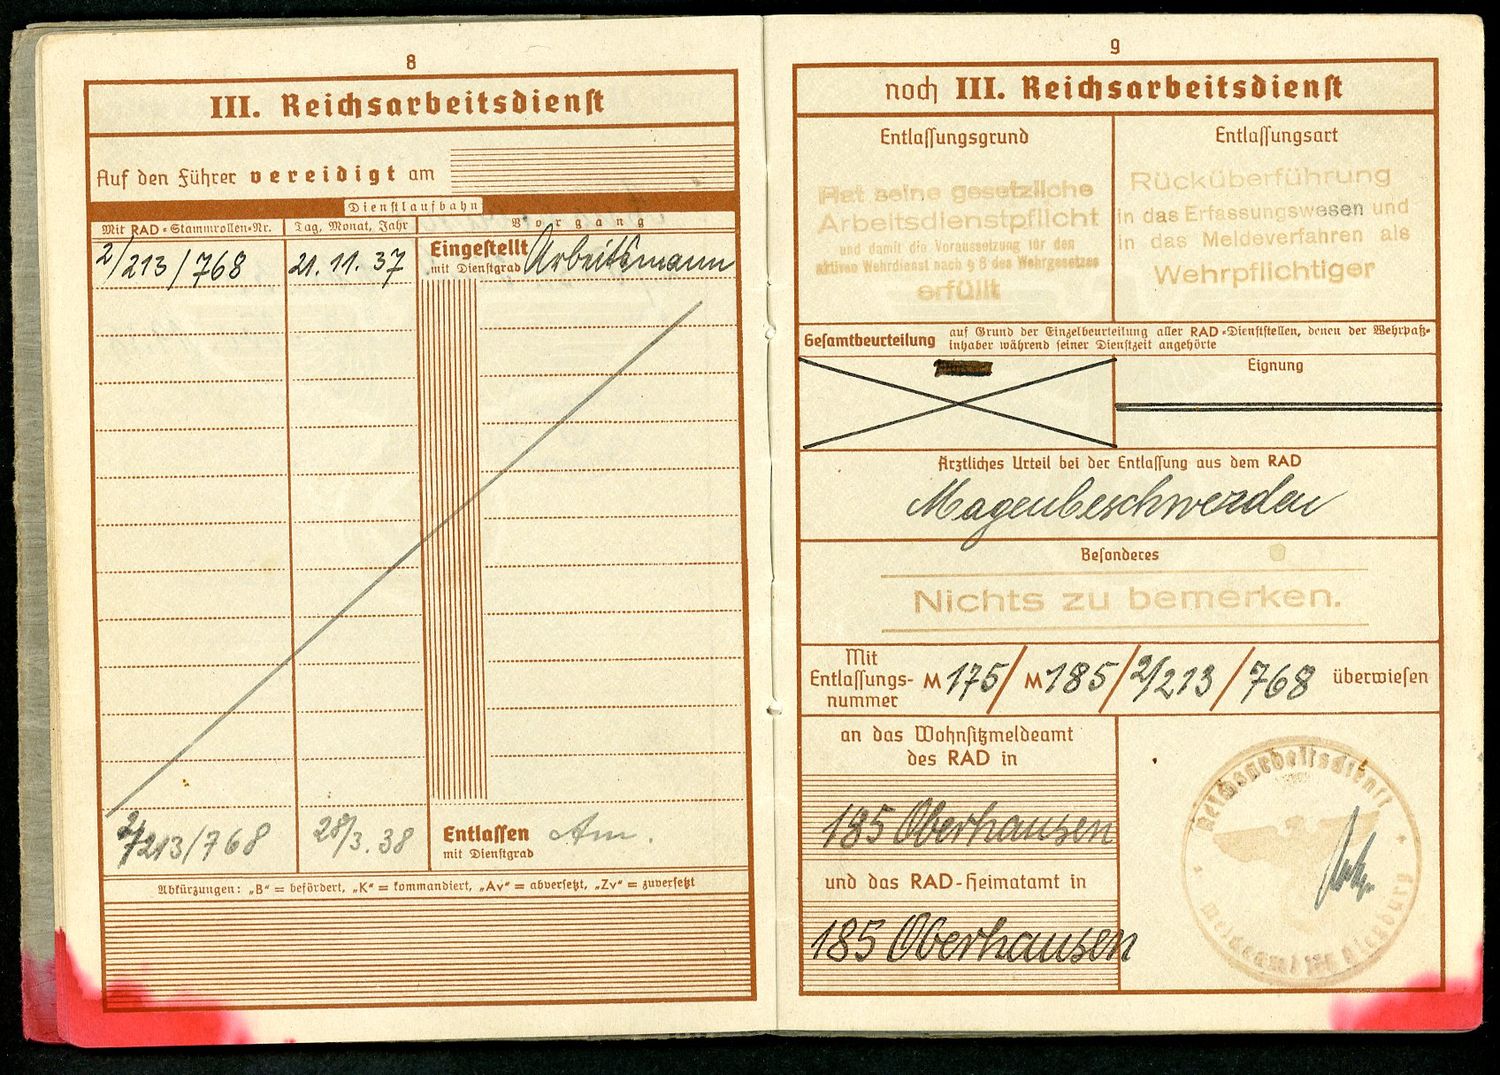 8
III. Reichsarbeitsdienst
Auf den Führer vereidigt am
Dienstlaufbahn
Mit RAD-Stammrollen-Nr. Tag, Monat, Jahr Vorgang
2/213/768 21.11.37 Eingestellt Arbeitsmann
mit Dienstgrad
2/213/768 28/3.38 Entlassen Am.
mit Dienstgrad
Abkürzungen: „B" = befördert, „K" = kommandiert, „Av" = abversetzt, „Zv" = zuversetzt
9
noch III. Reichsarbeitsdienst
Entlassungsgrund
Hat seine gesetzliche
Arbeitsdienstpflicht
und damit die Voraussetzung für den
aktiven Wehrdienst nach § 8 des Wehrgesetzes
erfüllt
Entlassungsart
Rücküberführung
in das Erfassungswesen und
in das Meldeverfahren als
Wehrpflichtiger
Gesamtbeurteilung auf Grund der Einzelbeurteilung aller RAD-Dienststellen, denen der Wehrpaß-
inhaber während seiner Dienstzeit angehörte
Eignung
Ärztliches Urteil bei der Entlassung aus dem RAD
Magenbeschwerden
Besonderes
Nichts zu bemerken.
Mit
Entlassungs-
nummer
M 175/ M 185/2/213/768 überwiesen
an das Wohnsitzmeldeamt
des RAD in
185 Oberhausen
und das RAD-Heimatamt in
185 Oberhausen
Reichsarbeitsdienst
Meldeamt